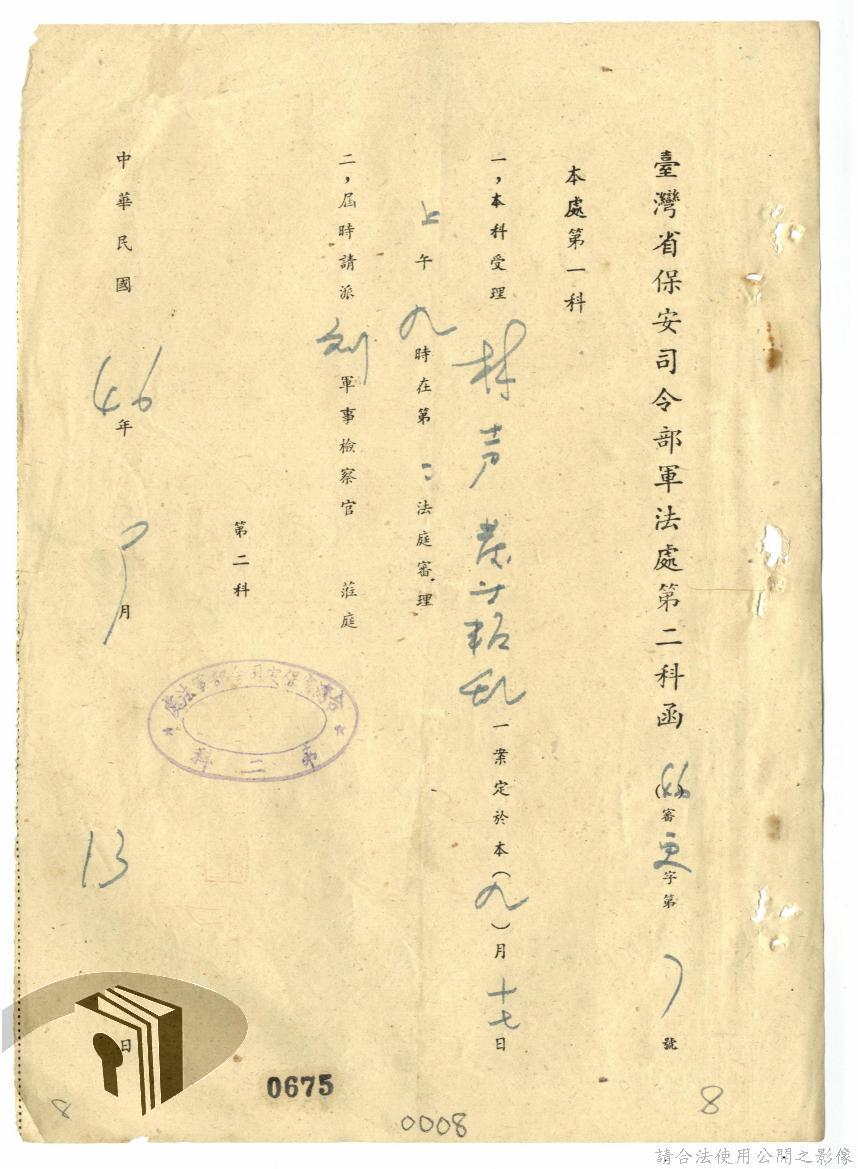 臺灣省保安司令部軍法處第二科函 (46)審更字第 號
本處第一科
一,本科受理 林声發等叛乱 一案定於本(九)月十七日
上午九時在第二法庭審理
二,屆時請派 刘 軍事檢察官 蒞庭
第二科
台灣省保安司令部軍法處
第二科
中華民國 46 年 9 月 13 日
0675
0008
8
8
請合法使用公開之影像